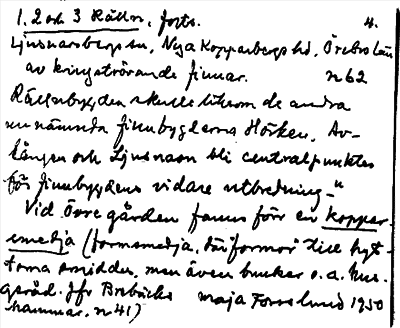 1, 2 och 3 Rällen, forts. 4.
Ljusnarsbergs sn, Nya Kopparbergs hd, Örebro län
av kringströvande finnar. n 62
Rällenbygden skulle liksom de andra
nu nämnda finnbygderna Hörken, Av-
lången och Ljusnaren bli centralpunkter
för finnbygdens vidare utbredning."
Vid Övre gården fanns förr en koppar-
smedja (formsmedja, där "formor" till hyt-
torna smiddes, men även bunkar o.a. hus-
geråd. Jfr Brobäcks Maja Forsslund 1950
hammar, n 41)